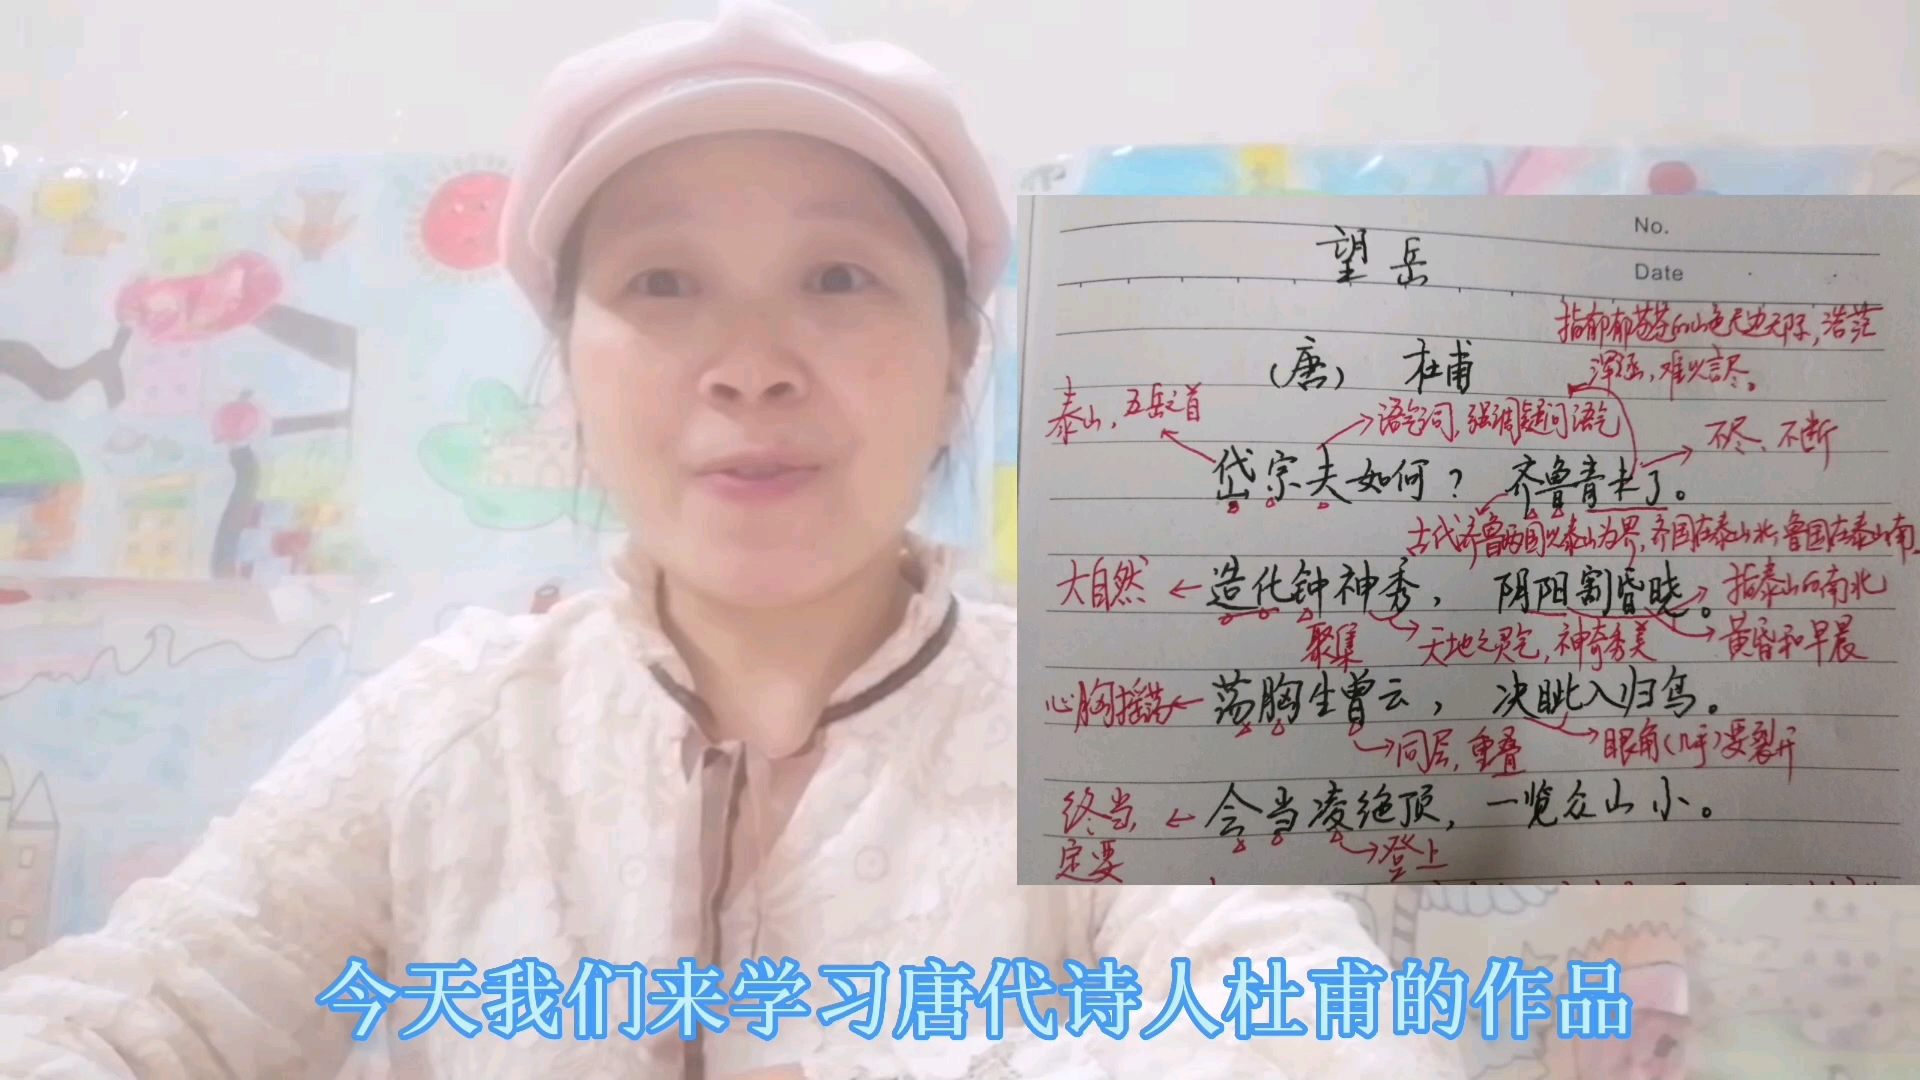 No.
望岳
Date
指郁郁苍苍的山色无边无际，浩茫
浑涵，难以言尽。
（唐） 杜甫
泰山，五岳之首
语气词，强调疑问语气
不尽、不断
岱宗夫如何？ 齐鲁青未了。
古代齐鲁两国以泰山为界，齐国在泰山北，鲁国在泰山南。
大自然
造化钟神秀， 阴阳割昏晓。
指泰山的南北
聚集
天地之灵气，神奇秀美
黄昏和早晨
心胸摇荡
荡胸生曾云， 决眦入归鸟。
同层，重叠
眼角（几乎）要裂开
终当，
定要
会当凌绝顶， 一览众山小。
登上
今天我们来学习唐代诗人杜甫的作品